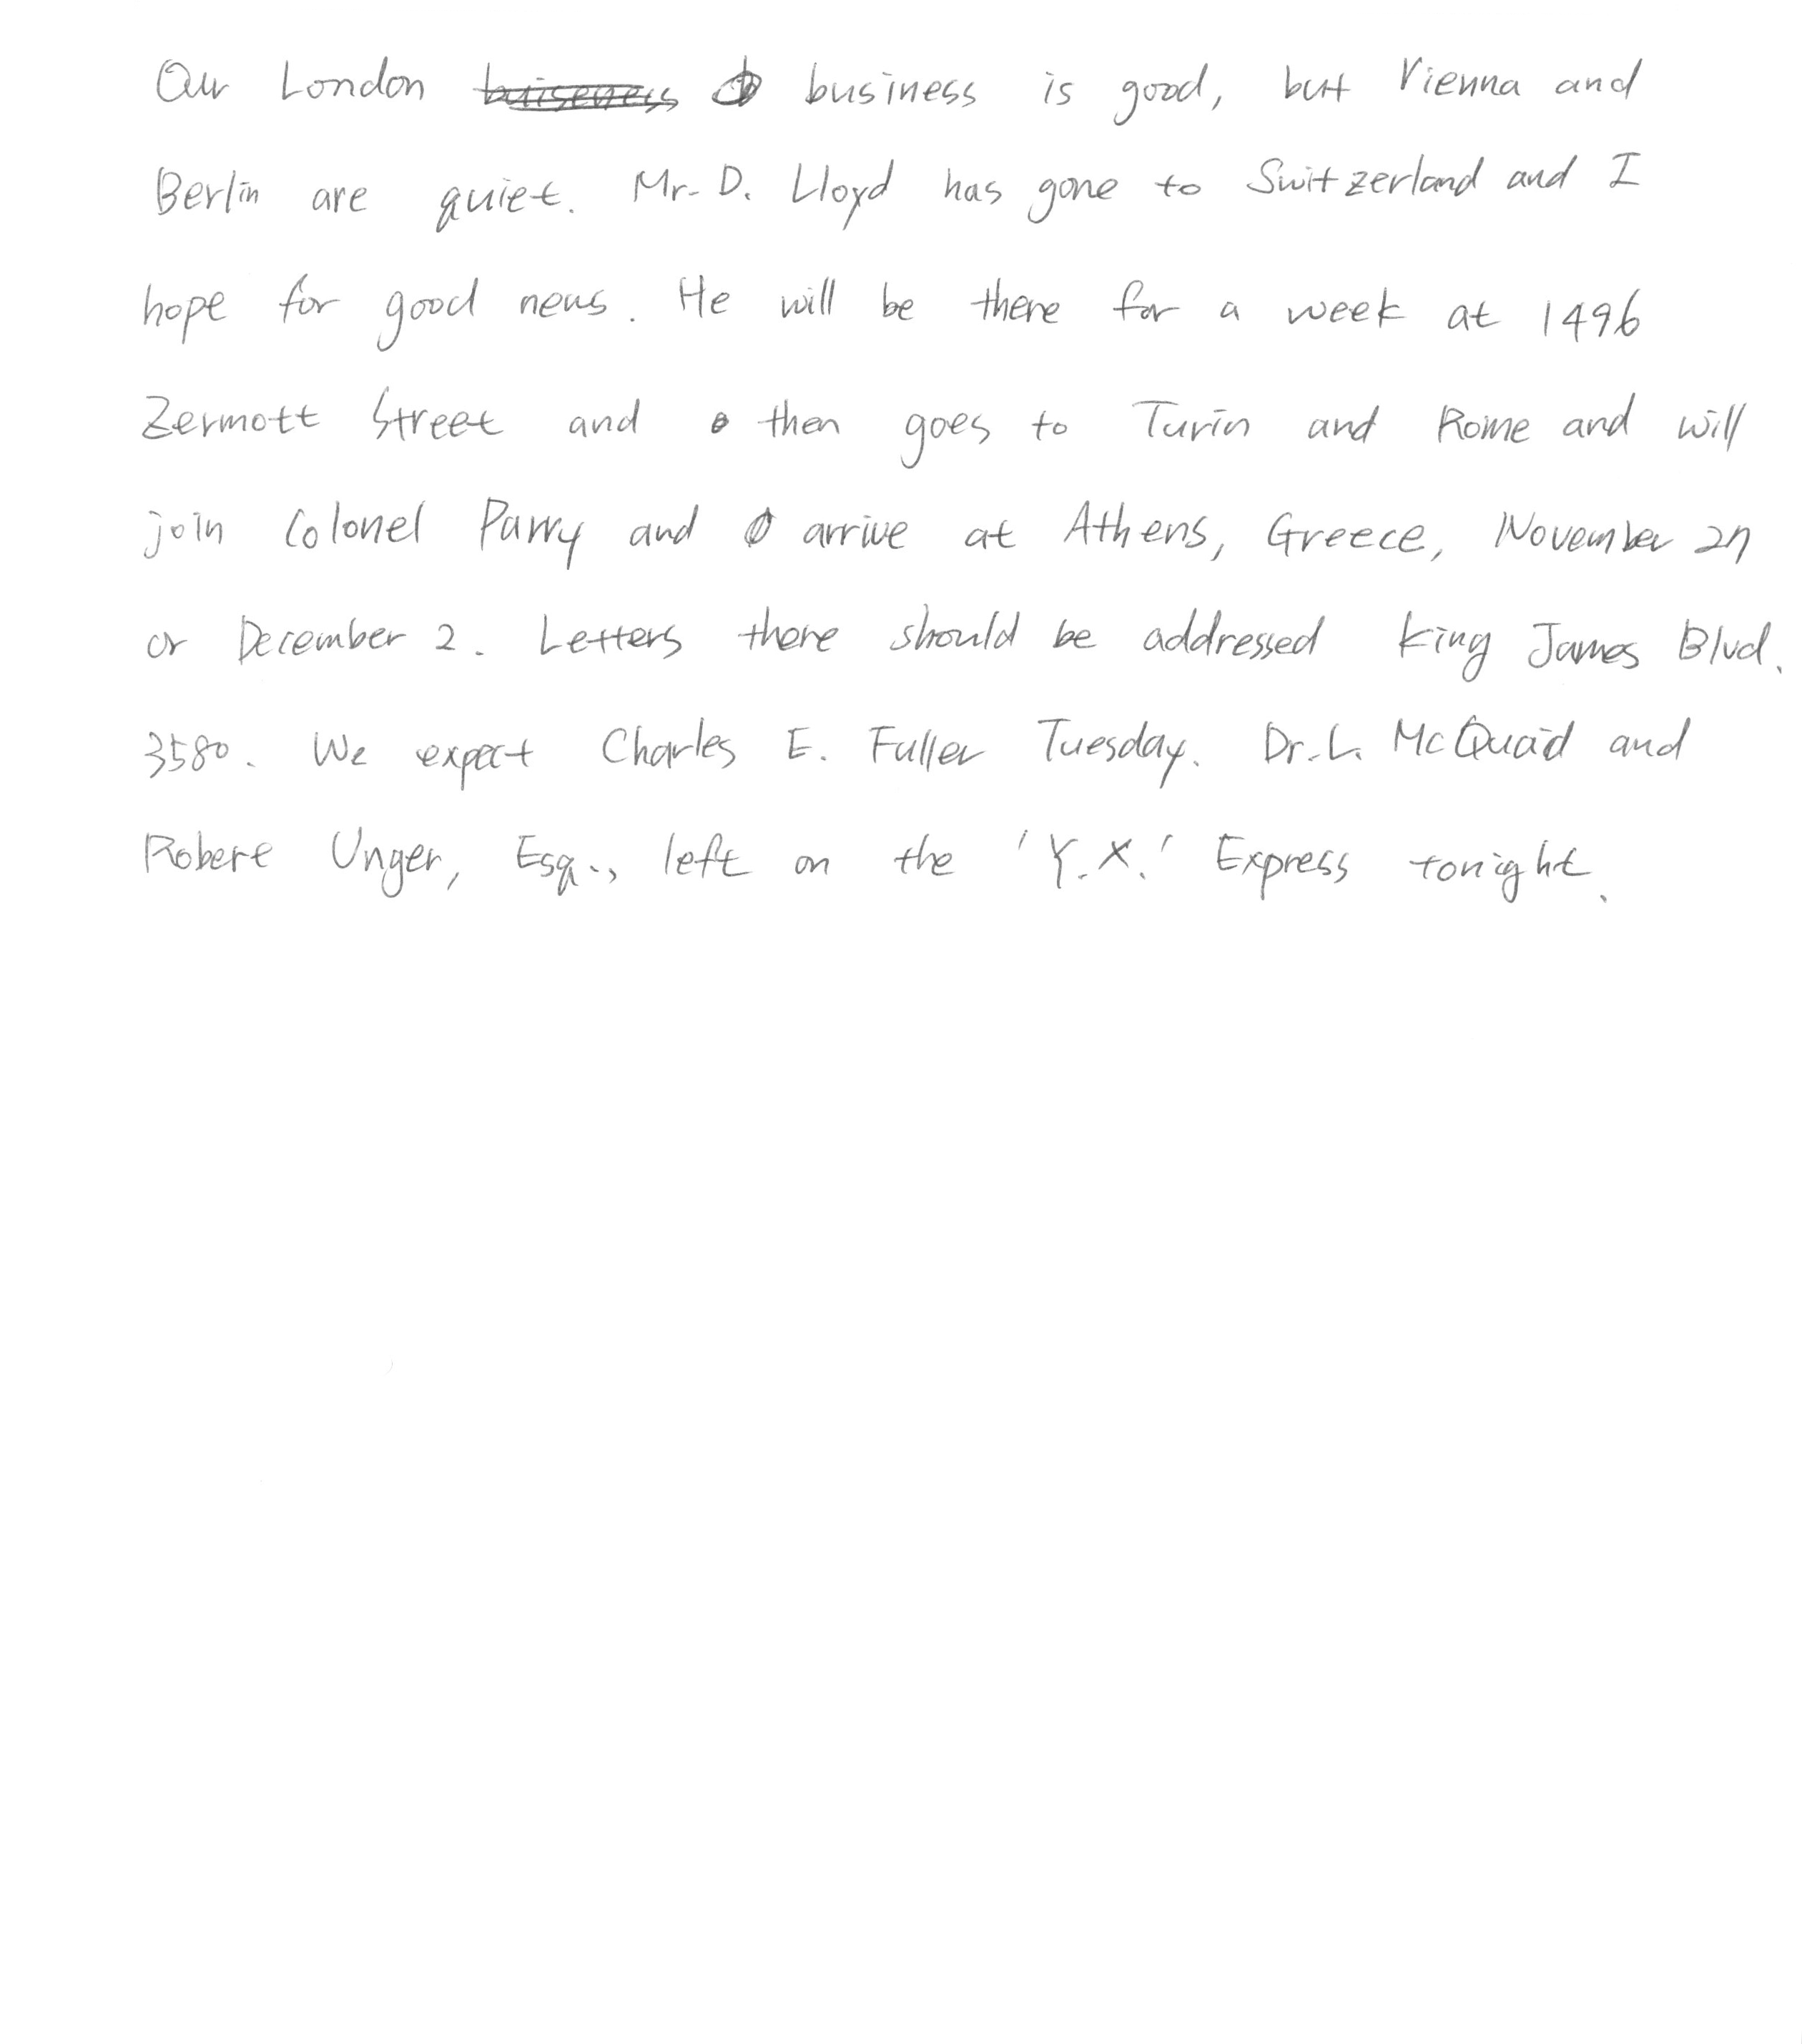 Our London business is good, but Vienna and
Berlin are quiet. Mr. D. Lloyd has gone to Switzerland and I
hope for good news. He will be there for a week at 1496
Zermott Street and then goes to Turin and Rome and will
join Colonel Parry and arrive at Athens, Greece, November 27
or December 2. Letters there should be addressed King James Blvd.
3580. We expect Charles E. Fuller Tuesday. Dr. L. McQuaid and
Robert Unger, Esq., left on the 'Y.X.' Express tonight.